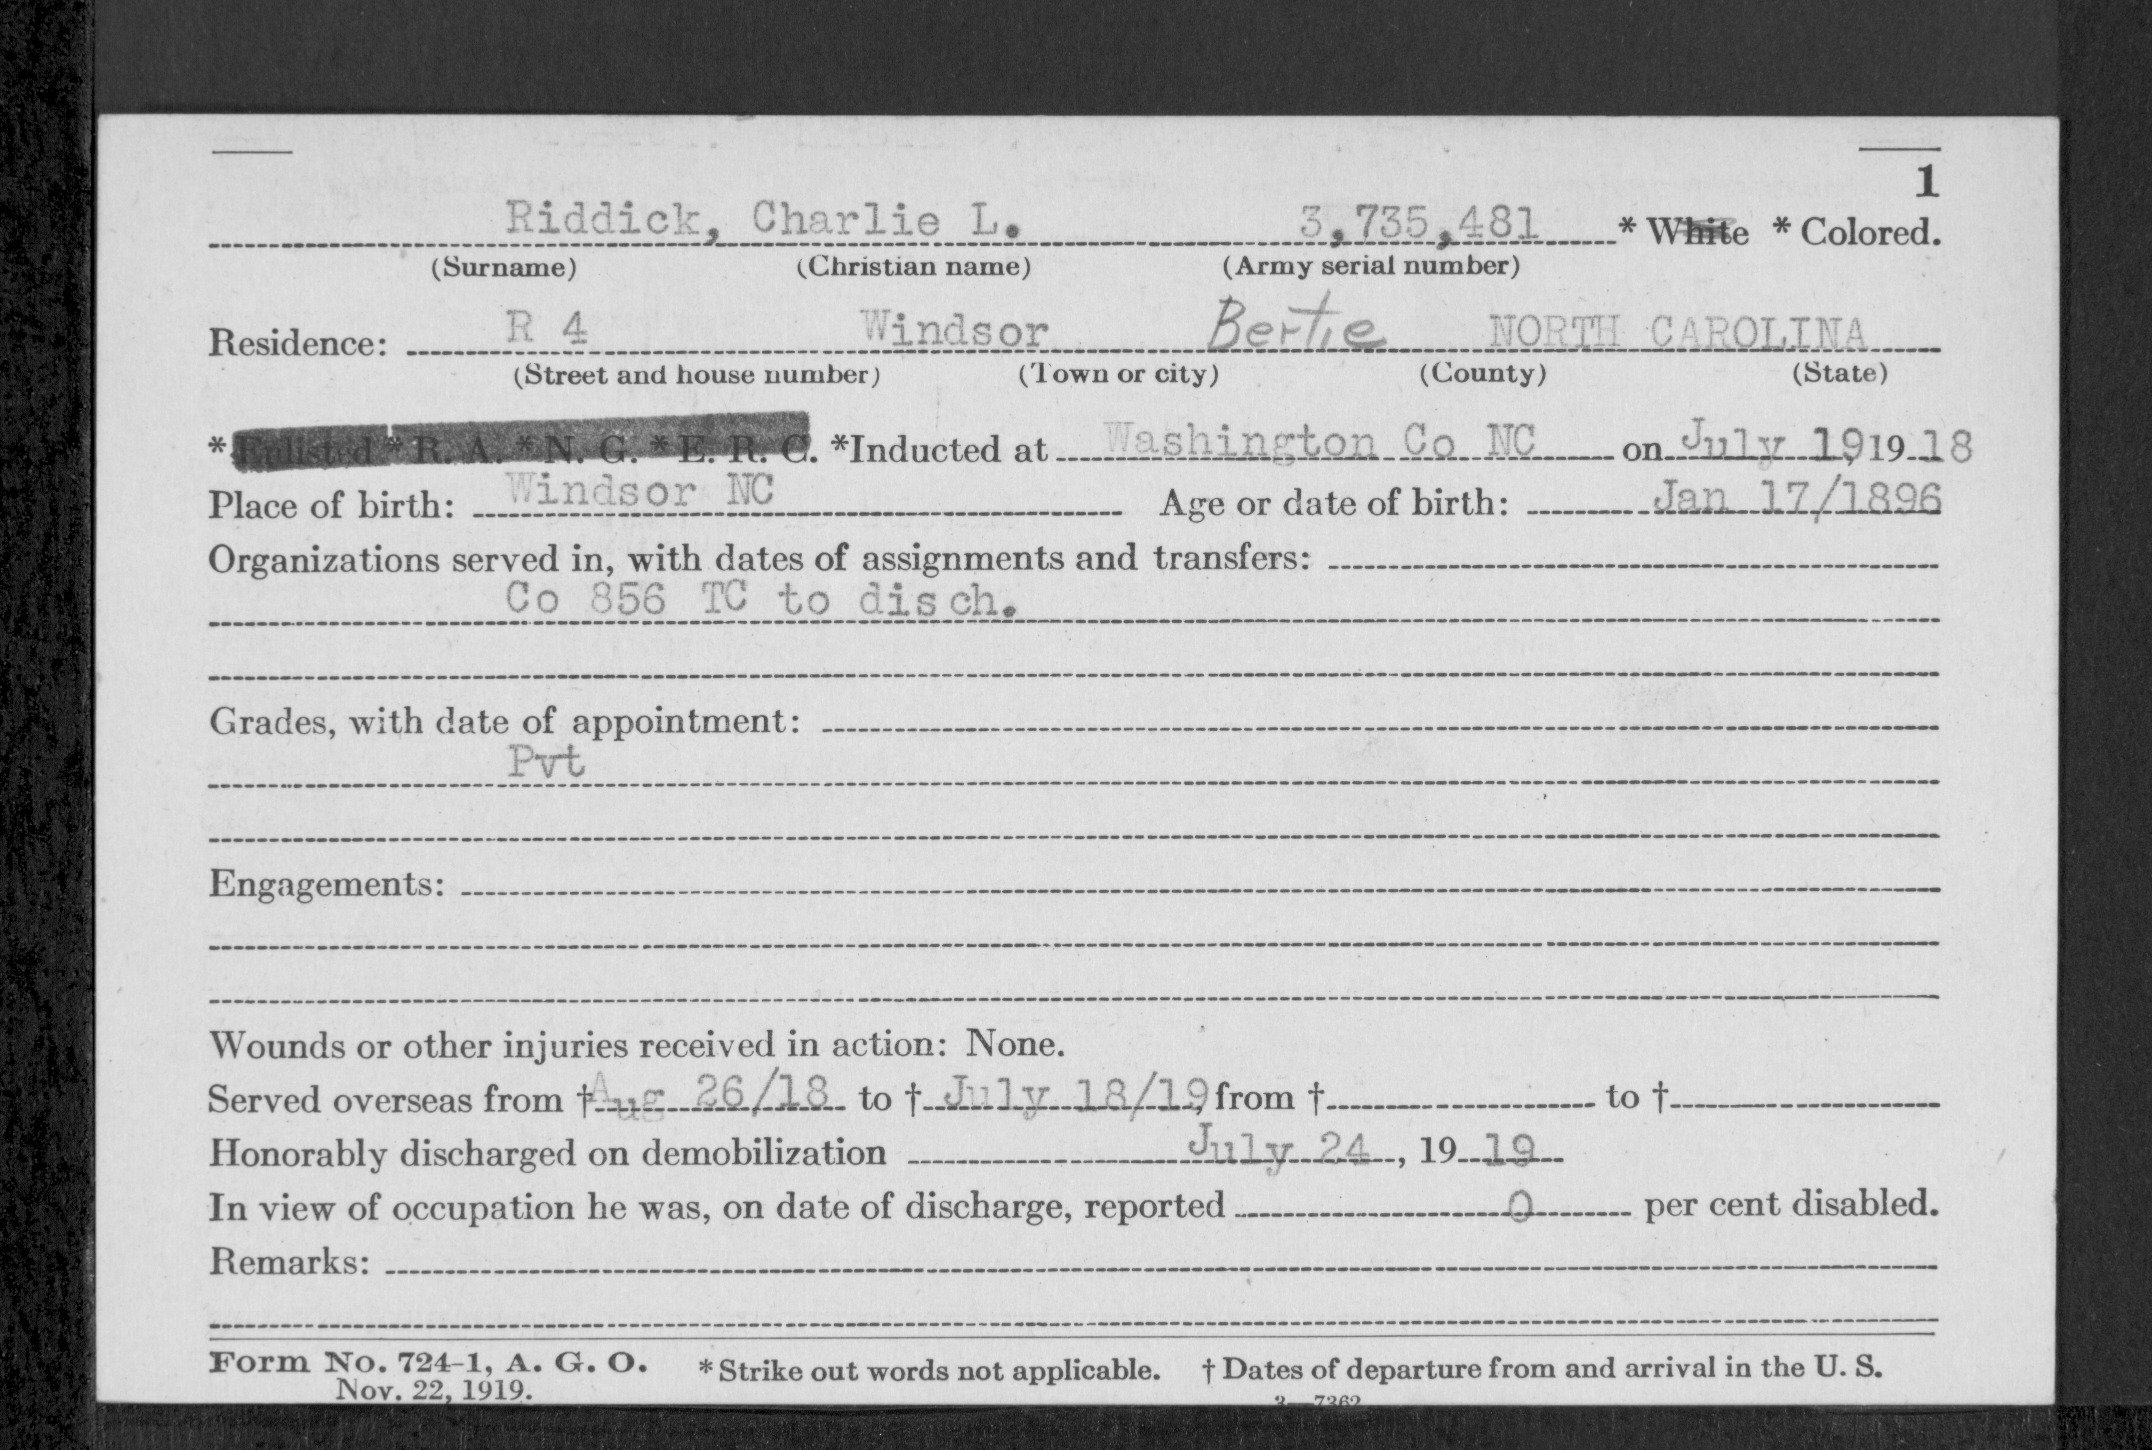 1
Riddick, Charlie L. 3,735,481 * White * Colored.
(Surname) (Christian name) (Army serial number)
Residence: R 4 Windsor Bertie NORTH CAROLINA
(Street and house number) (Town or city) (County) (State)
* Enlisted * R. A. * N. G. * E. R. C. *Inducted at Washington Co NC on July 19, 1918
Place of birth: Windsor NC Age or date of birth: Jan 17/1896
Organizations served in, with dates of assignments and transfers:
Co 856 TC to disch.
Grades, with date of appointment:
Pvt
Engagements:
Wounds or other injuries received in action: None.
Served overseas from † Aug 26/18 to † July 18/19, from † to †
Honorably discharged on demobilization July 24, 1919
In view of occupation he was, on date of discharge, reported 0 per cent disabled.
Remarks:
Form No. 724-1, A. G. O. * Strike out words not applicable. † Dates of departure from and arrival in the U. S.
Nov. 22, 1919. 3—7362